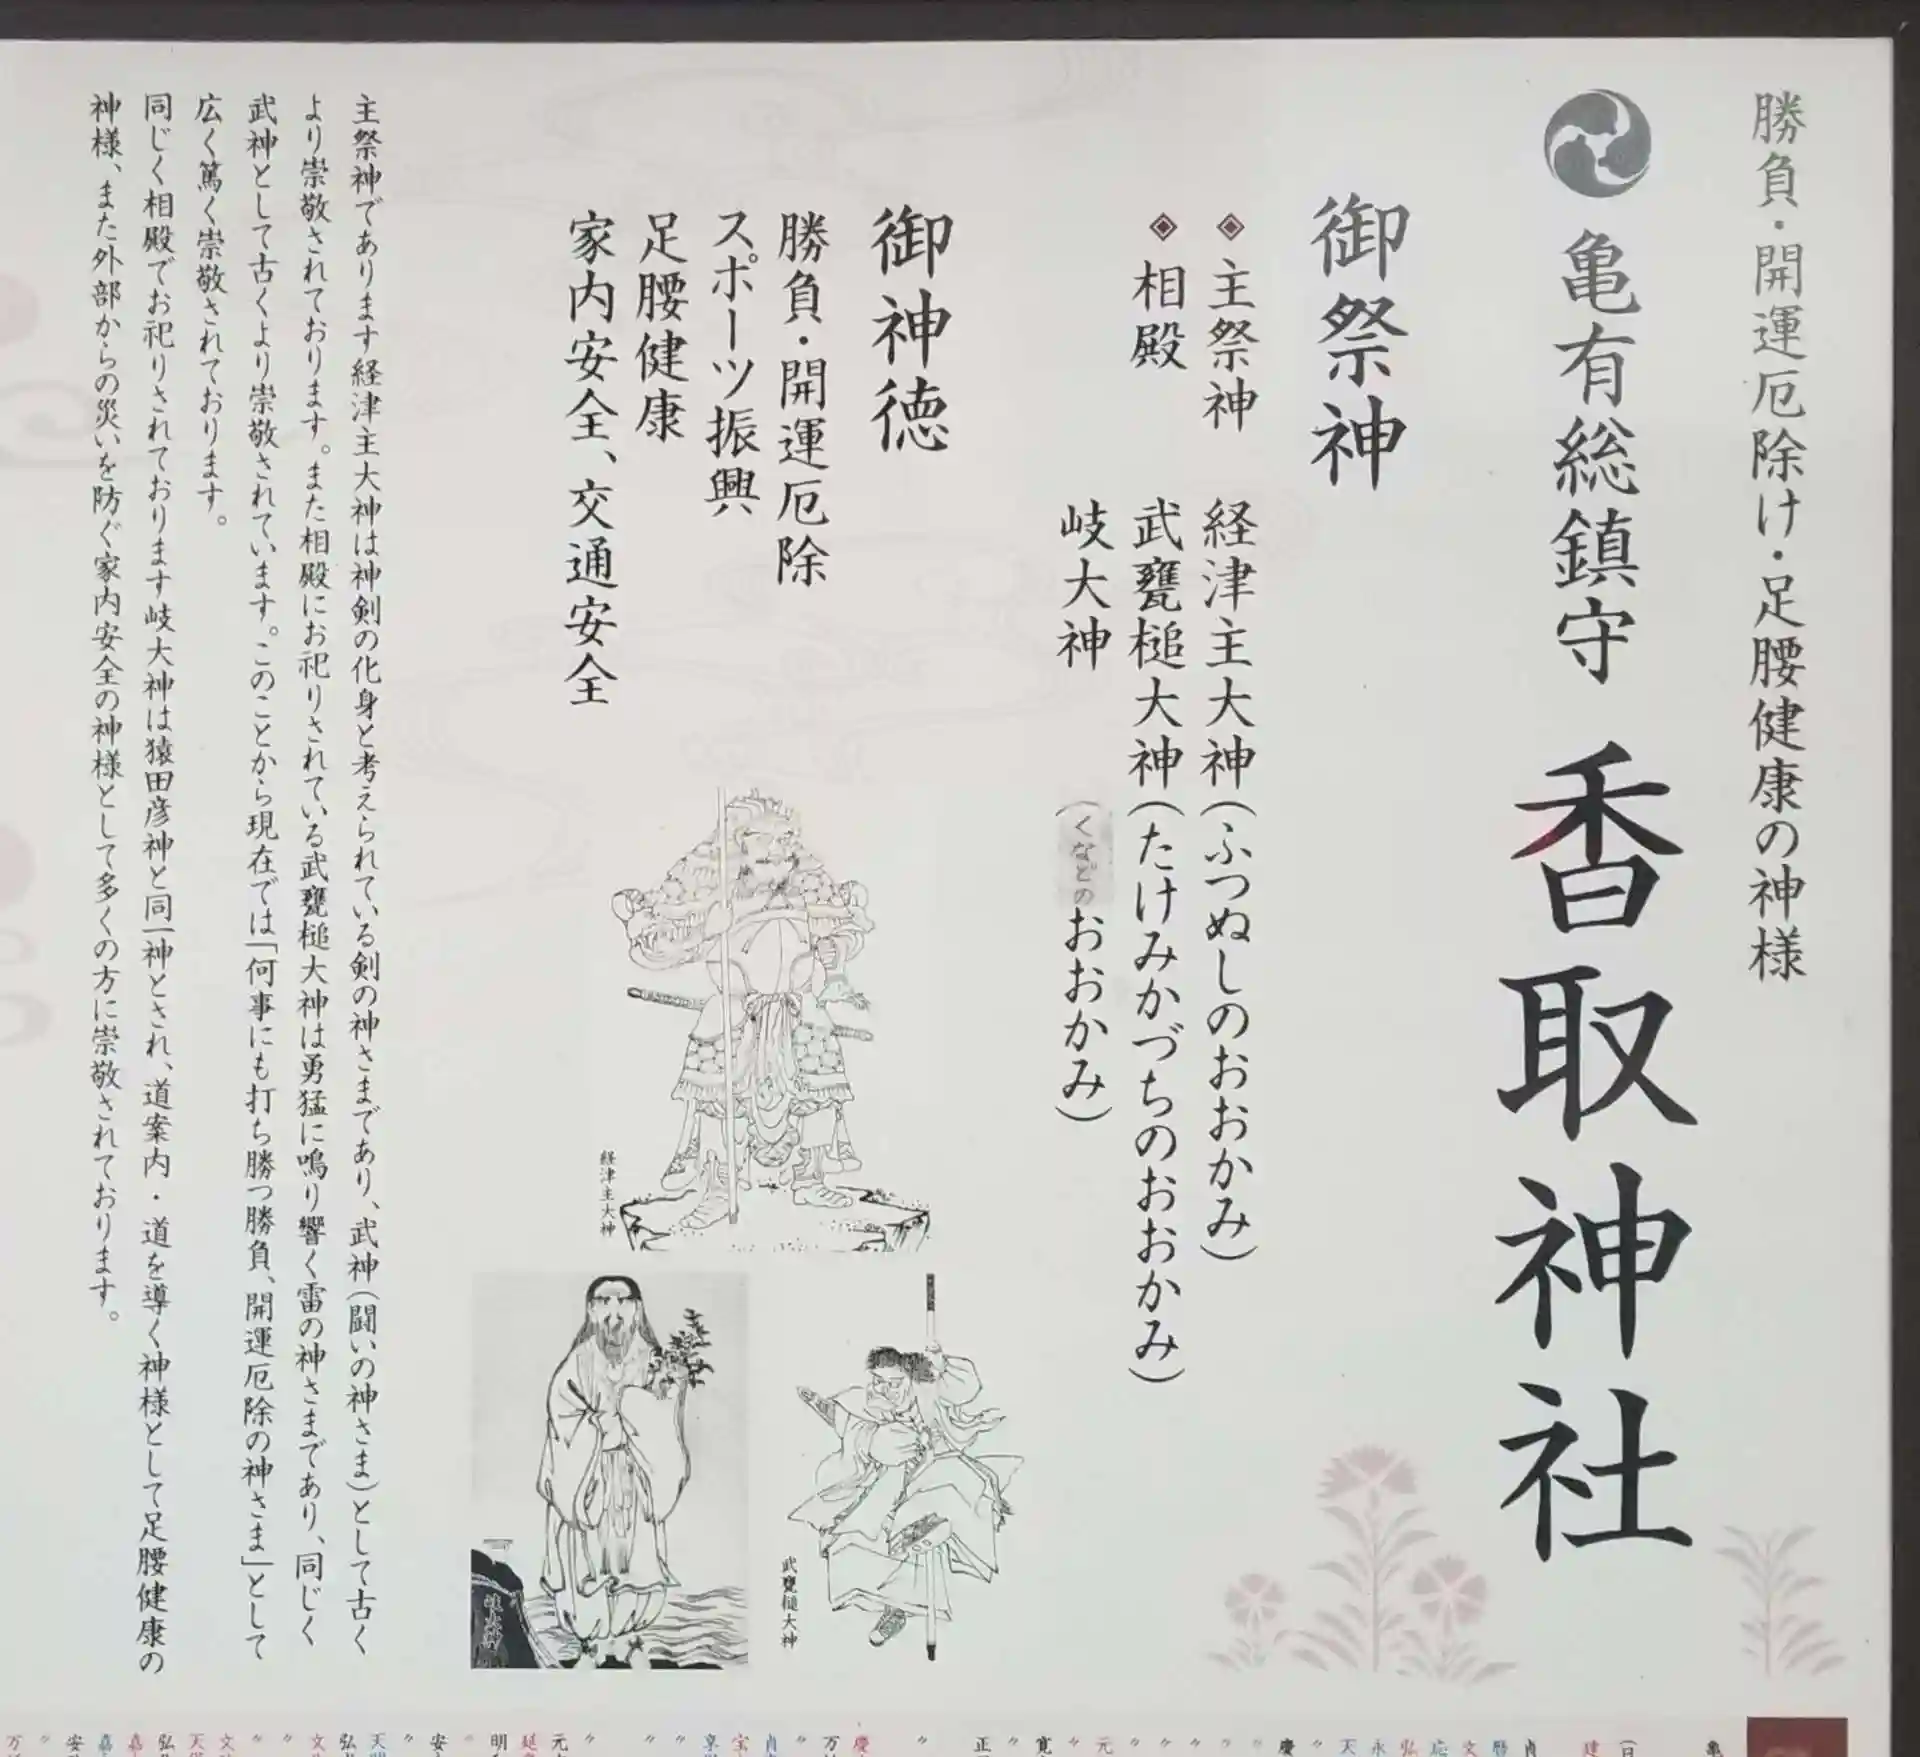 勝負・開運厄除け・足腰健康の神様
亀有総鎮守 香取神社
御祭神
◈ 主祭神 経津主大神(ふつぬしのおおかみ)
◈ 相殿 武甕槌大神(たけみかづちのおおかみ)
岐大神(くなどのおおかみ)
御神徳
勝負・開運厄除
スポーツ振興
足腰健康
家内安全、交通安全
経津主大神
武甕槌大神
岐大神
主祭神であります経津主大神は神剣の化身と考えられている剣の神さまであり、武神(闘いの神さま)として古く
より崇敬されております。また相殿にお祀りされている武甕槌大神は勇猛に鳴り響く雷の神さまであり、同じく
武神として古くより崇敬されています。このことから現在では「何事にも打ち勝つ勝負、開運厄除の神さま」として
広く篤く崇敬されております。
同じく相殿でお祀りされております岐大神は猿田彦神と同一神とされ、道案内・道を導く神様として足腰健康の
神様、また外部からの災いを防ぐ家内安全の神様として多くの方に崇敬されております。